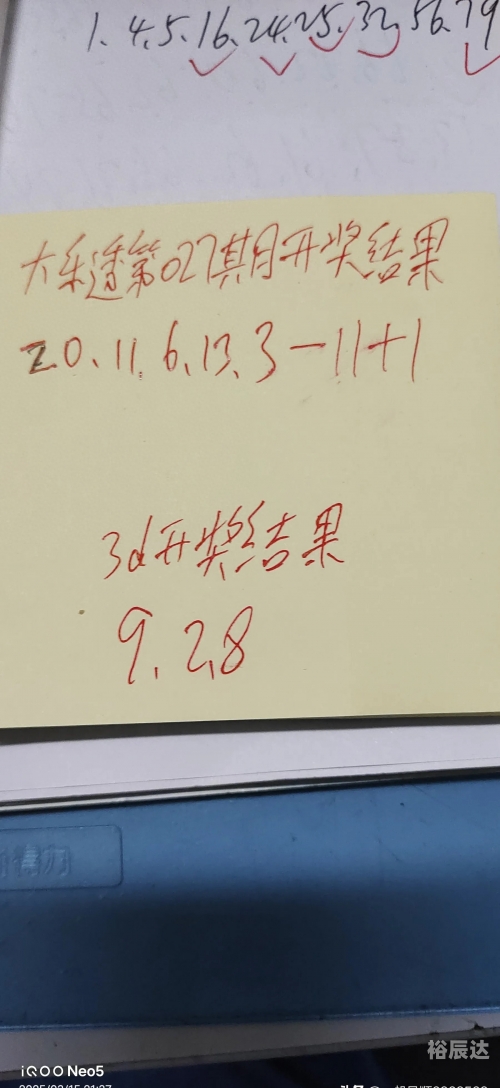 1.4.5.16.24.25.32.56.79
大乐透第027期开奖结果
20、11、6、13、3-11+1
3d开奖结果
9、2、8
iQOO Neo5
裕辰达